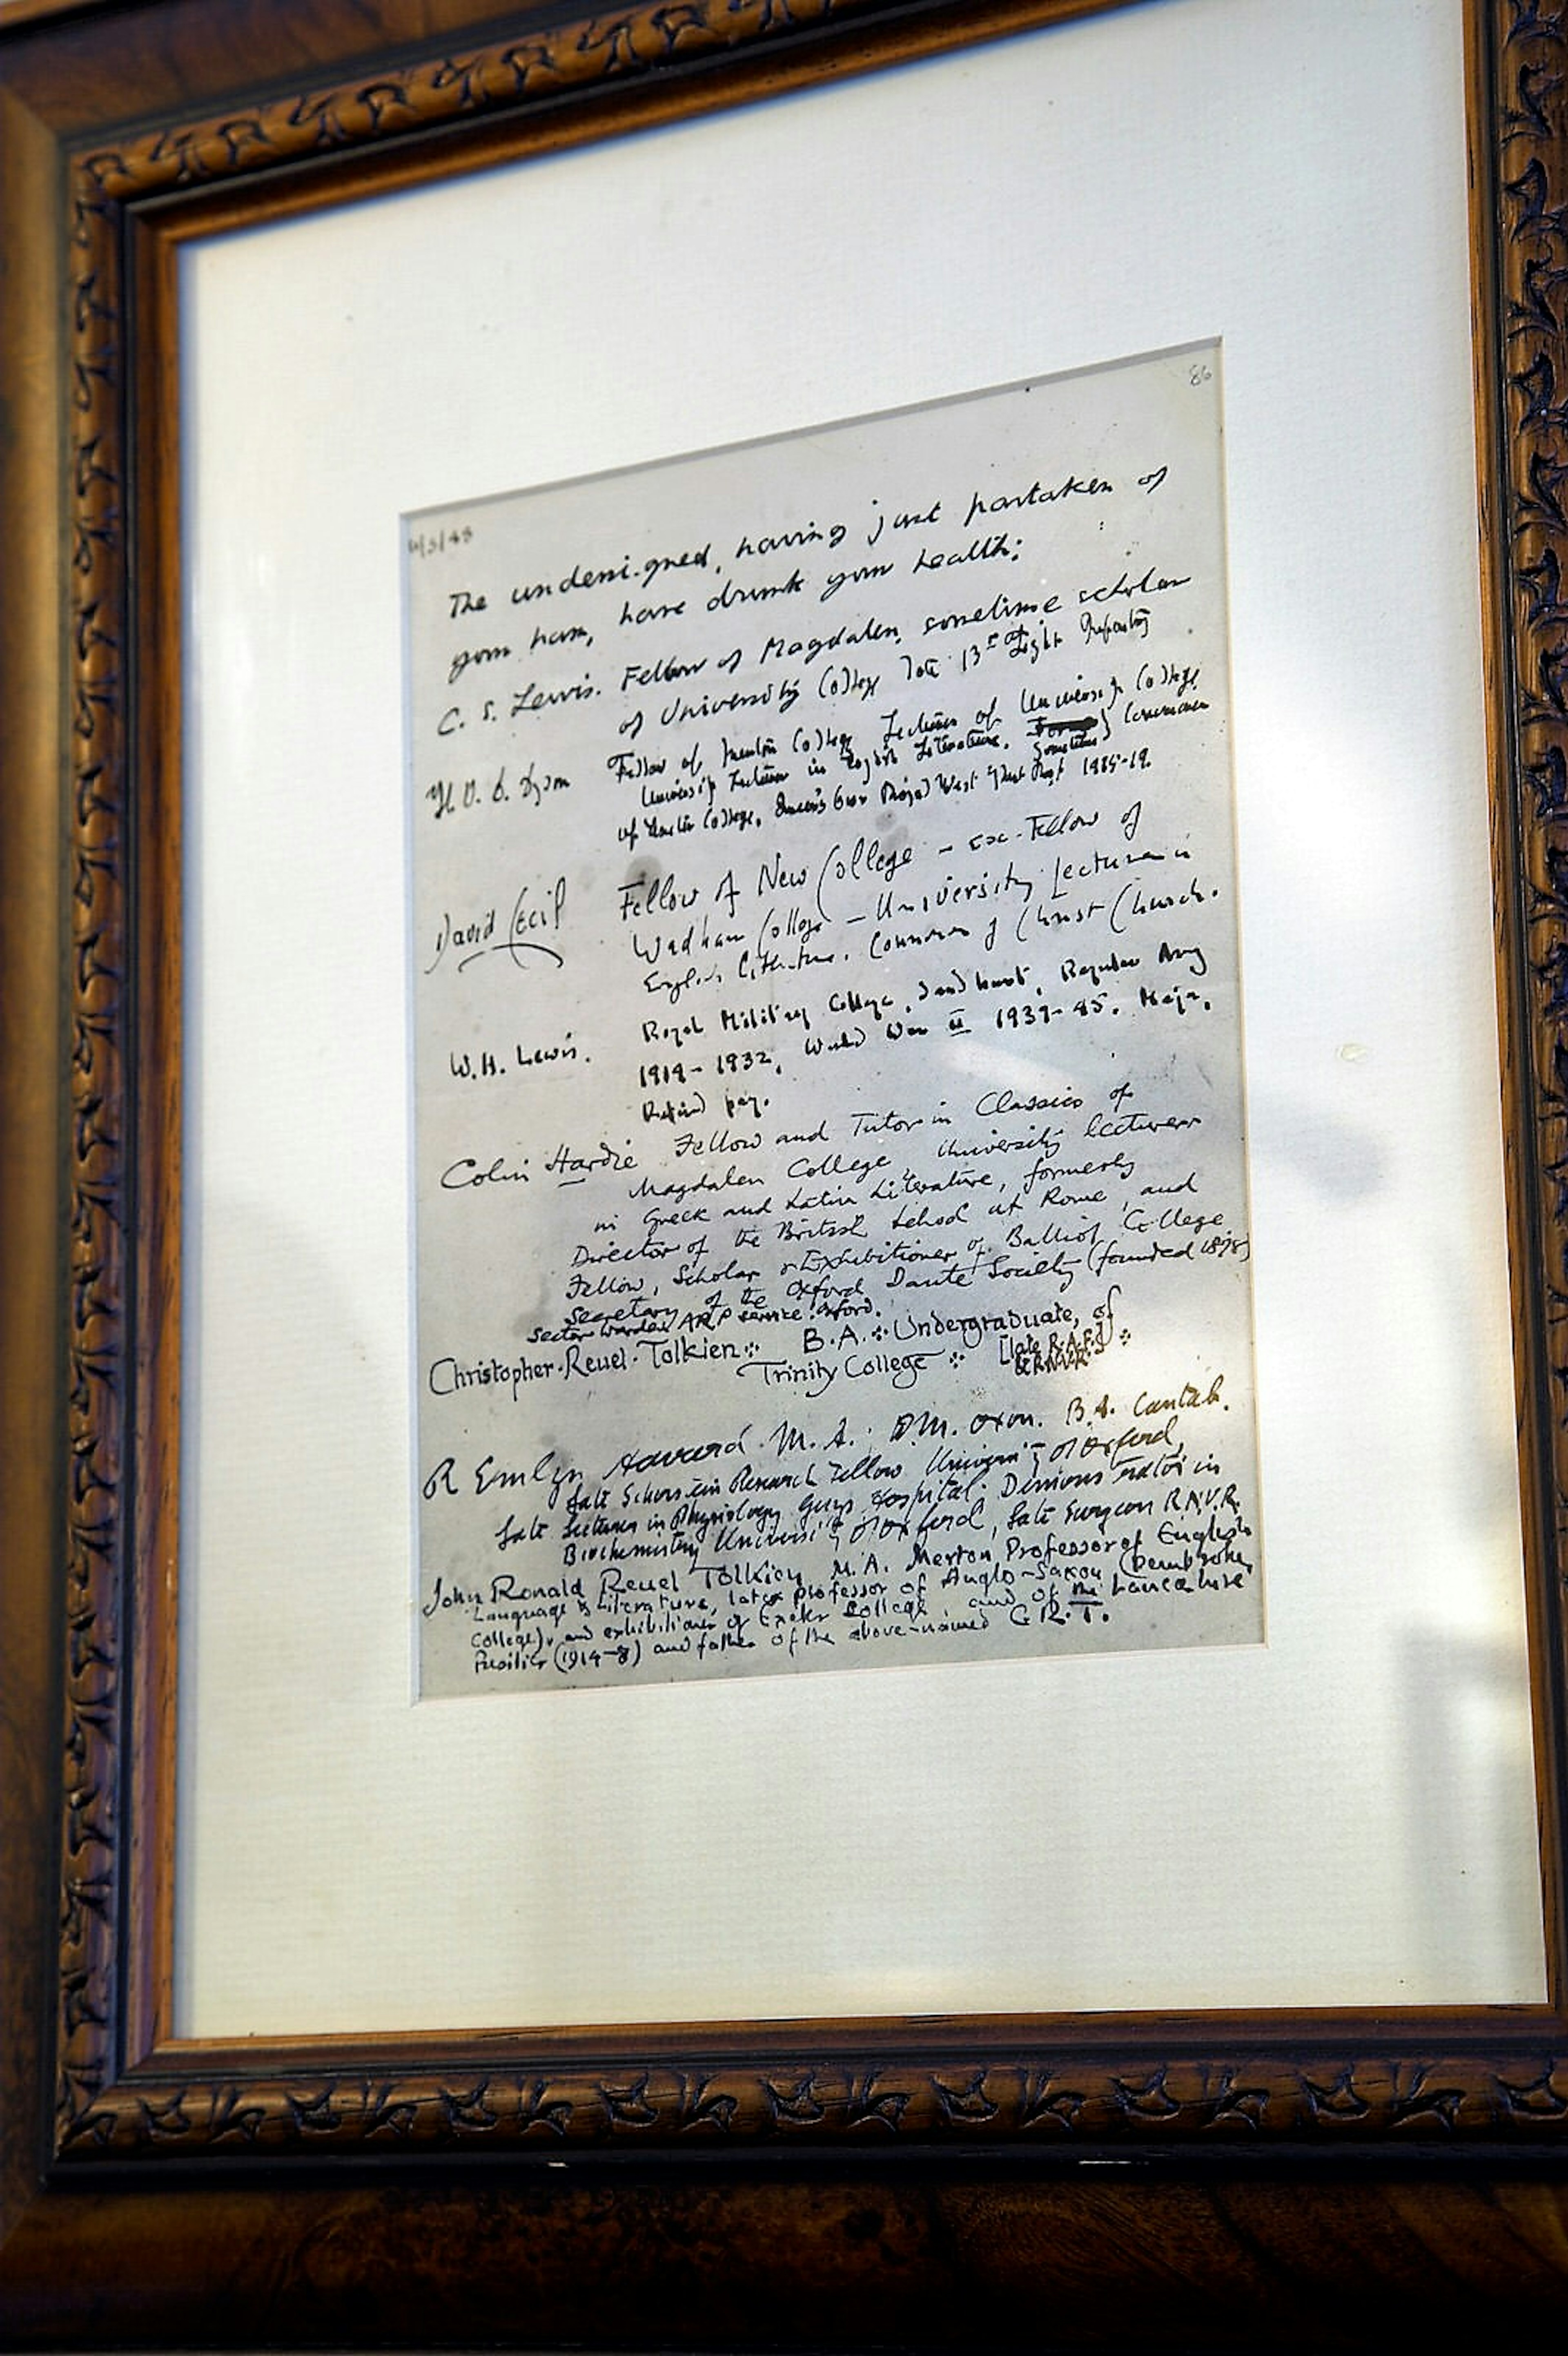 86
The undersigned, having just partaken of
your ham, have drunk your health:
C. S. Lewis. Fellow of Magdalen, sometime scholar
of University College late 13th Light Infantry
H. V. D. Dyson Fellow of Merton College Lecturer of University College
University Lecturer in English Literature. Sometime Commoner
of College, Queen's Own Royal West Kent Regt
David Cecil Fellow of New College – ex-Fellow of
Wadham College – University Lecturer in
English Literature. Commoner of Christ Church.
W. H. Lewis. Royal Military College, Sandhurst, Regular Army
1914–1932, World War II 1939–45. Major,
Retired pay.
Colin Hardie Fellow and Tutor in Classics of
Magdalen College, University lecturer
in Greek and Latin Literature, formerly
Director of the British School at Rome, and
Fellow, Scholar & Exhibitioner of Balliol College
Secretary of the Oxford Dante Society (founded
Sector Warden ARP service Oxford.
Christopher · Reuel · Tolkien B.A. Undergraduate, of
Trinity College [late R.A.F.]
R Emlyn Havard M.A.; D.M. Oxon. B.A. Cantab.
late Schorstein Research Fellow University of Oxford,
late Lecturer in Physiology Guys Hospital. Demonstrator in
Biochemistry University of Oxford, late Surgeon R.N.V.R.
John Ronald Reuel Tolkien M.A. Merton Professor of English
Language & Literature, late professor of Anglo-Saxon (Pembroke
College), and exhibitioner of Exeter College, and of the Lancashire
Fusiliers (1914–8) and father of the above-named C.R.T.